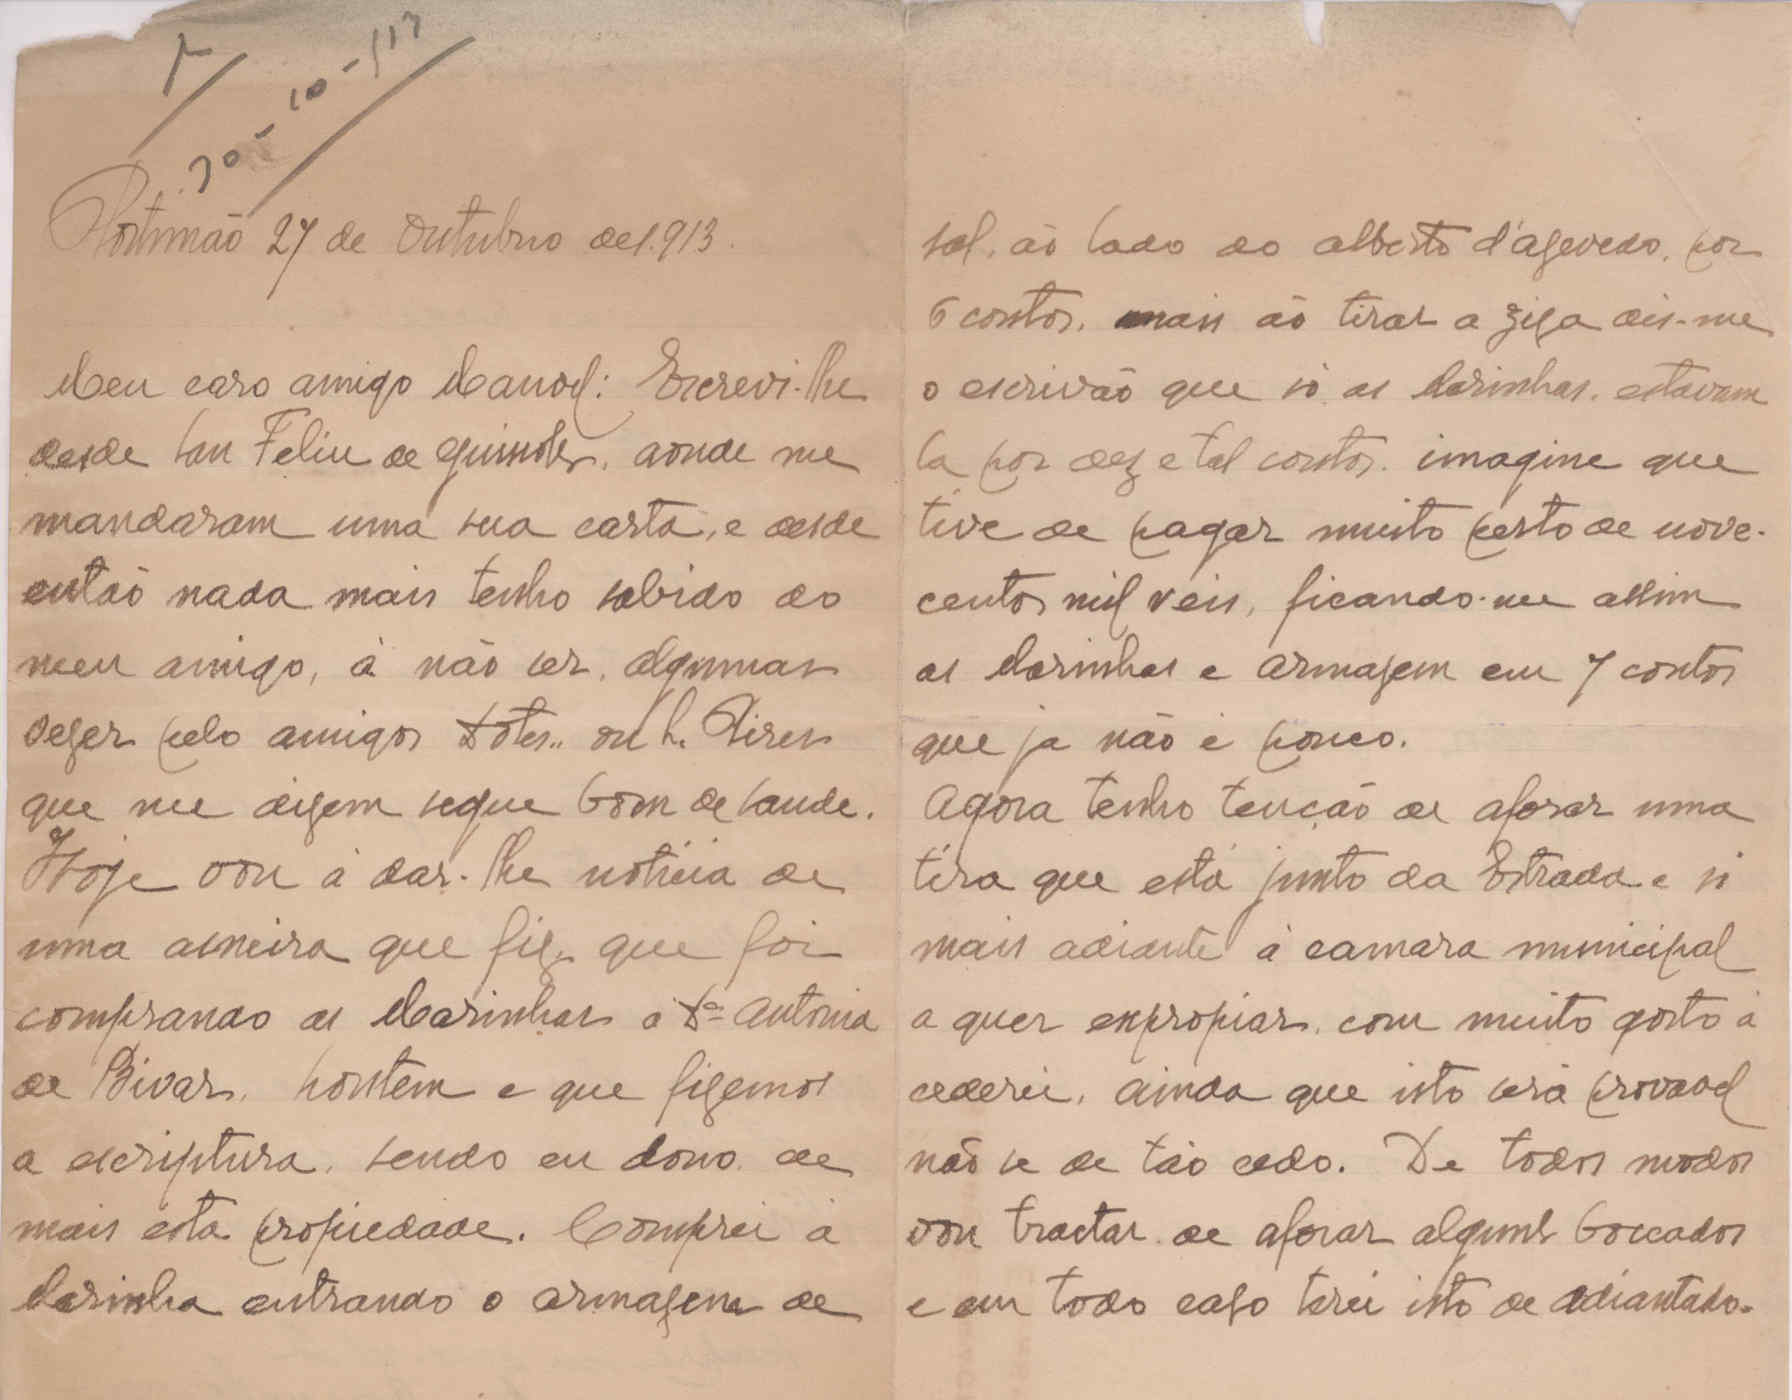 R
30-10-913
Portimão 27 de Outubro de 1.913.
Meu caro amigo Manoel: Escrevi-lhe
desde San Feliu de Guixols, aonde me
mandaram uma sua carta, e desde
então nada mais tenho sabido do
meu amigo, á não ser, algumas
vezes pelo amigos ou Pires
que me dizem segue bom de saude.
Hoje vou á dar-lhe noticia de
uma asneira que fiz, que foi
comprando as Marinhas a Dª Antonia
de Bivar, hontem e que fizemos
a escriptura, sendo eu dono de
mais esta propiedade. Comprei á
Marinha entrando o armazem de
sal, aó lado do alberto d'azevedo, por
6 contos, mais aó tirar a ziza dis-me
o escrivaó que só as Marinhas, estavam
la por dez e tal contos. imagine que
tive de pagar muito perto de nove-
centos mil reis, ficando-me assim
as Marinhas e armazem em 7 contos
que ja não é pouco.
Agora tenho tenção de aforar uma
tira que está junto da Estrada e si
mais adiante á camara municipal
a quer expropiar, com muito gosto á
cederei, ainda que isto será provavel
não se de tão cedo. De todos modos
vou tractar de aforar alguns boccados
e em todo cazo terei isto de adiantado.